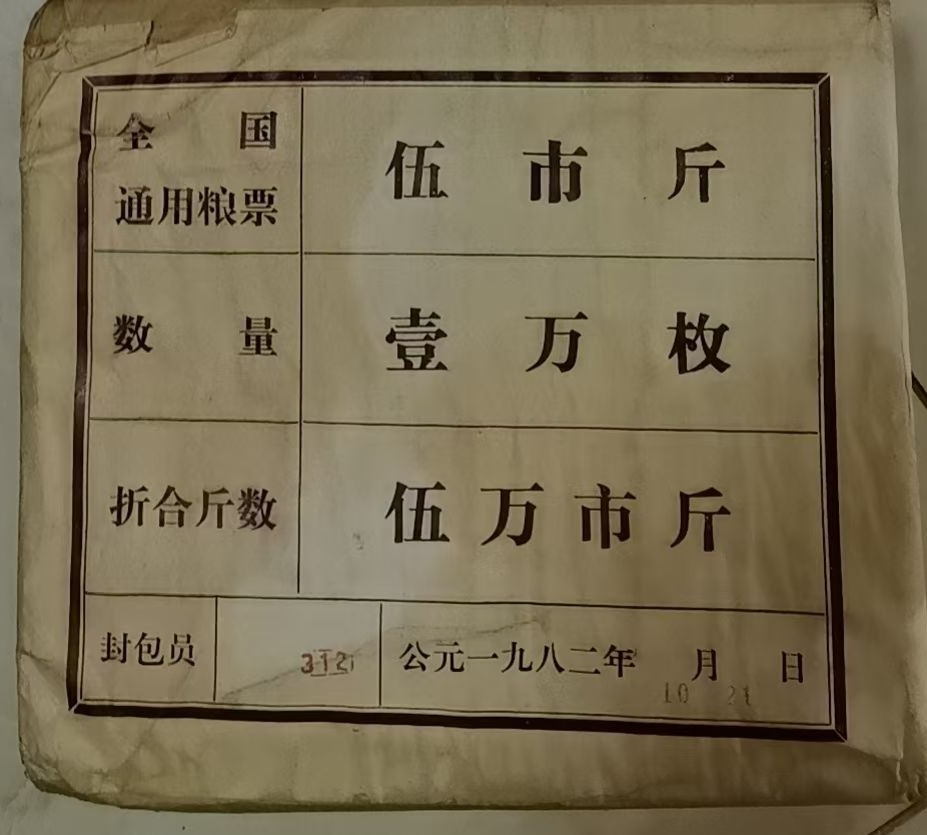 全国
通用粮票 伍市斤
数量 壹万枚
折合斤数 伍万市斤
封包员 312 公元一九八二年 月 日
10 21